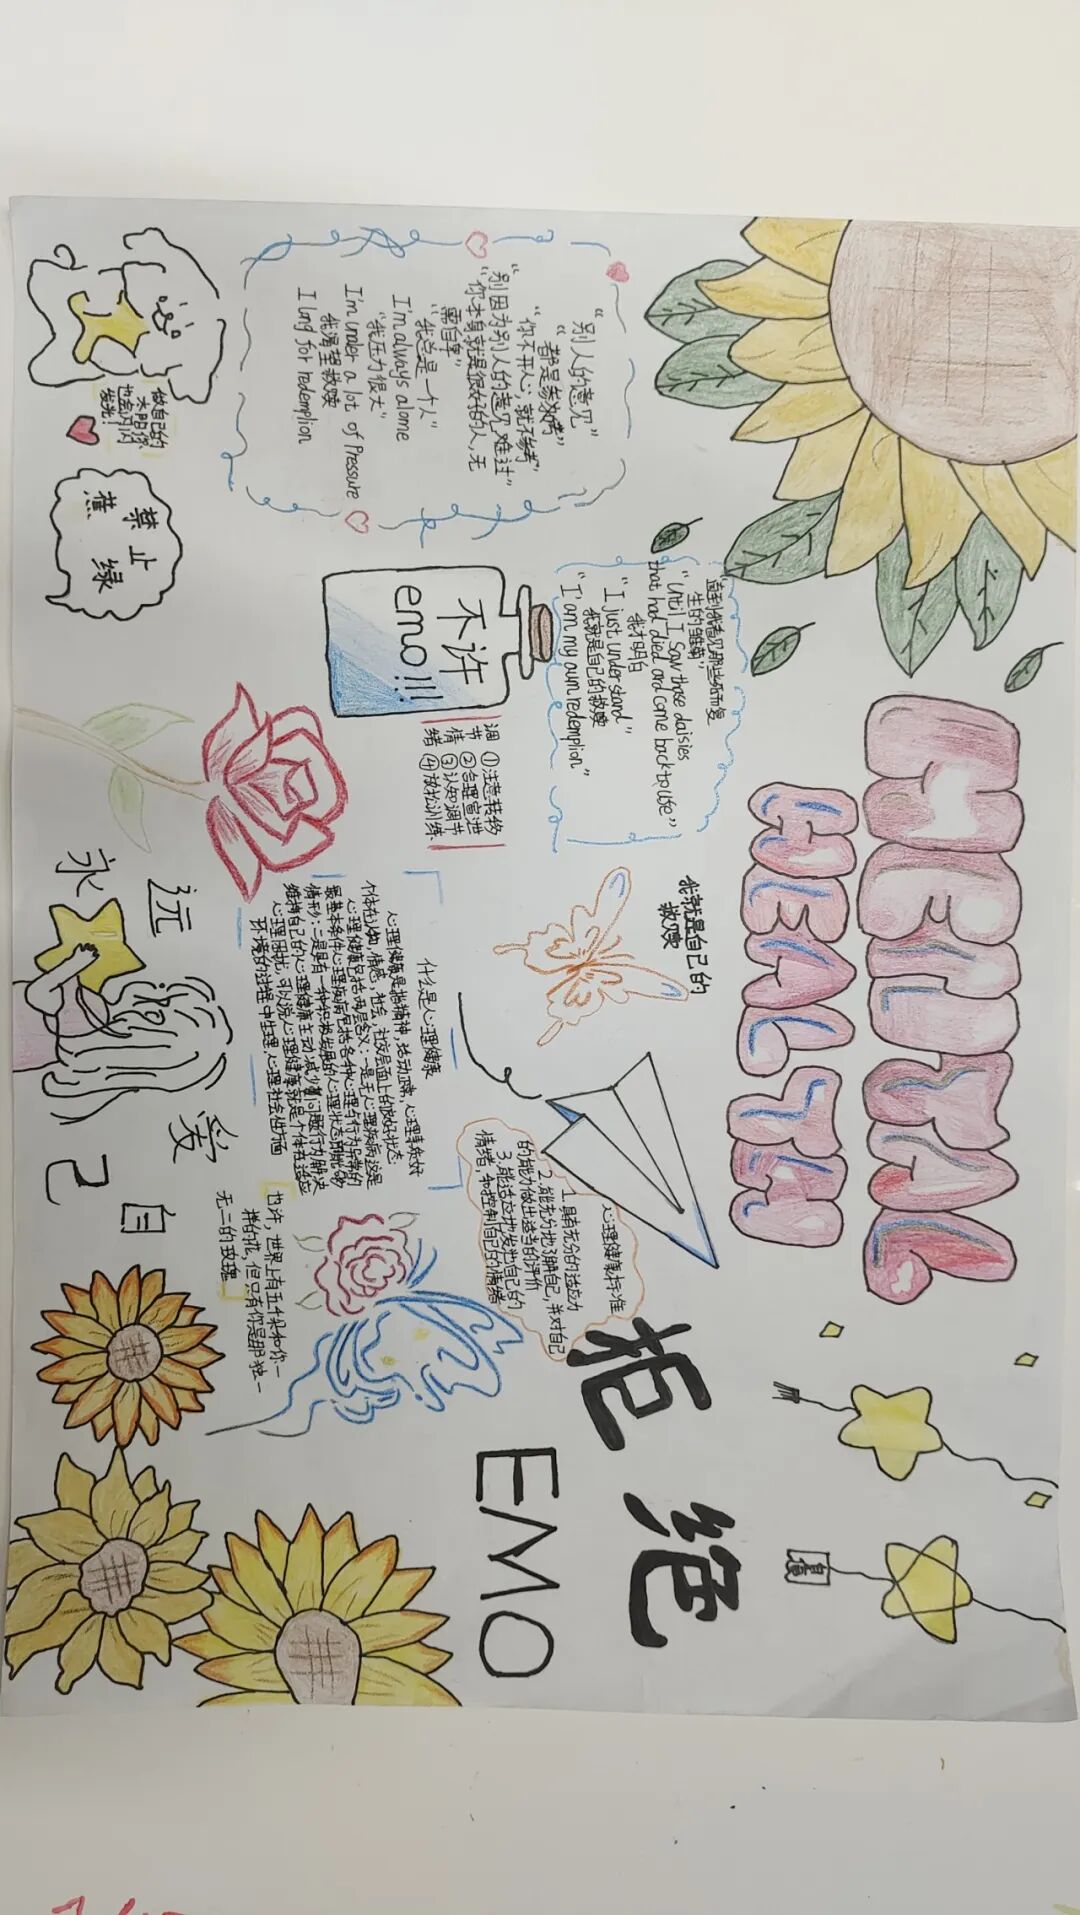 MENTAL
HEALTH
"别人的意见"
"都是参考"
"你不开心，就不参考"
"别因为别人的意见难过"
"你本身就是很好的人，无
需自卑"
"我总是一个人"
I'm always alone
"我压力很大"
I'm under a lot of Pressure
我渴望救赎
I long for redemption
做自己的
太阳你
也会闪闪
发光！
禁止绿
蕉
不许
emo!!!
"直到我看见那些死而复
生的雏菊"
"Until I Saw those daisies
that had died and come back to
我才明白
"I just understand"
我就是自己的救赎
"I am my own redemption"
调节情绪
①注意转移
②合理宣泄
③认知调节
④放松训练
我就是自己的
救赎
什么是心理健康
心理健康是指精神，活动正常，心理素质好
个体在认知，情感，社会，社交层面上的良好状态
心理健康包括两层含义：一是无心理疾病这是
最基本条件心理疾病包括各种心理与行为异常的
情形；二是具有一种积极发展的心理状态即能够
维持自己的心理健康主动减少问题行为解决
心理困扰，可以说心理健康就是个体在适应
环境的过程中生理，心理社会性方面
心理健康标准
1.具有充分的适应力
2.能充分地了解自己，并对自己
的能力做出适当的评价
3.能适应地发泄自己的
情绪，和控制自己的情绪
拒绝
EMO
永远爱自己
也许，世界上有五千朵和你一
样的花，但只有你是那独一
无二的玫瑰